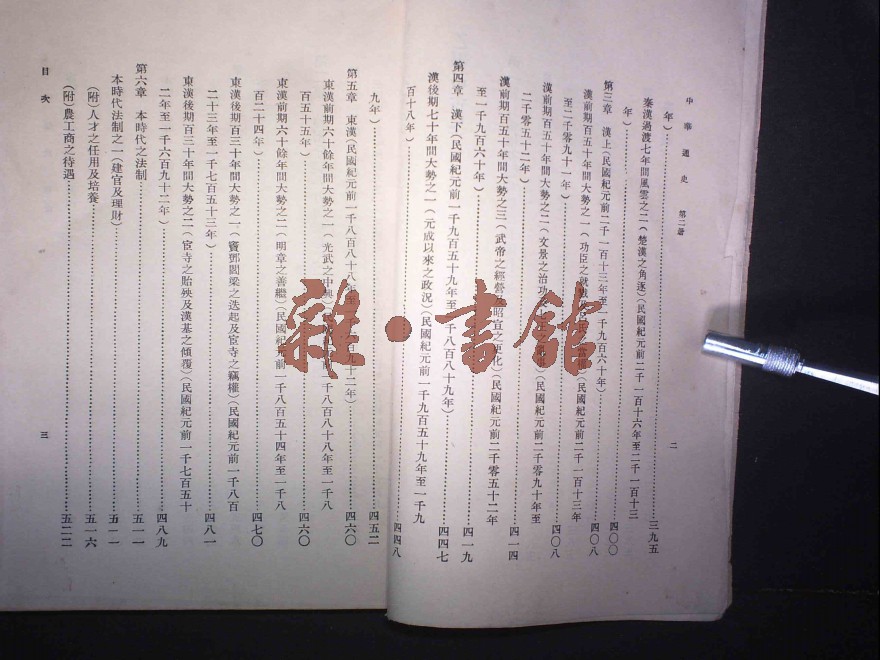 中華通史 第二册
二
年)……三九五
秦漢過渡七年間風雲之二(楚漢之角逐)(民國紀元前二千一百十六年至二千一百十三
年)……四〇〇
第三章 漢上(民國紀元前二千一百十三年至一千九百六十年)……四〇八
漢前期百五十年間大勢之一(功臣之
(民國紀元前二千一百十三年
至二千零九十一年)……四〇八
漢前期百五十年間大勢之二(文景之治
(民國紀元前二千零九十年至
二千零五十二年)……四一四
漢前期百五十年間大勢之三(武帝之經營及昭宣之
(民國紀元前二千零五十二年
至一千九百六十年)……四一九
第四章 漢下(民國紀元前一千九百五十九年至一千八百八十九年)……四四七
漢後期七十年間大勢之一(元成以來之政況)(民國紀元前一千九百五十九年至一千九
百十八年)……四四八
九年)……四五二
第五章 東漢(民國紀元前一千八百八十八年至一千六百九十二年)……四六〇
東漢前期六十餘年間大勢之一(光武之中興)(民國紀元前一千八百八十八年至一千八
百五十五年)……四六〇
東漢前期六十餘年間大勢之二(明章之善繼)(民國紀元前一千八百五十四年至一千八
百二十四年)……四七〇
東漢後期百三十年間大勢之一(竇鄧閻梁之迭起及宦寺之竊權)(民國紀元前一千八百
二十三年至一千七百五十三年)……四八一
東漢後期百三十年間大勢之二(宦寺之貽殃及漢基之傾覆)(民國紀元前一千七百五十
二年至一千六百九十二年)……四八九
第六章 本時代之法制……五一一
本時代法制之一(建官及理財)……五一一
(附)人才之任用及培養……五一六
(附)農工商之待遇……五二二
目次
三
雜·書館